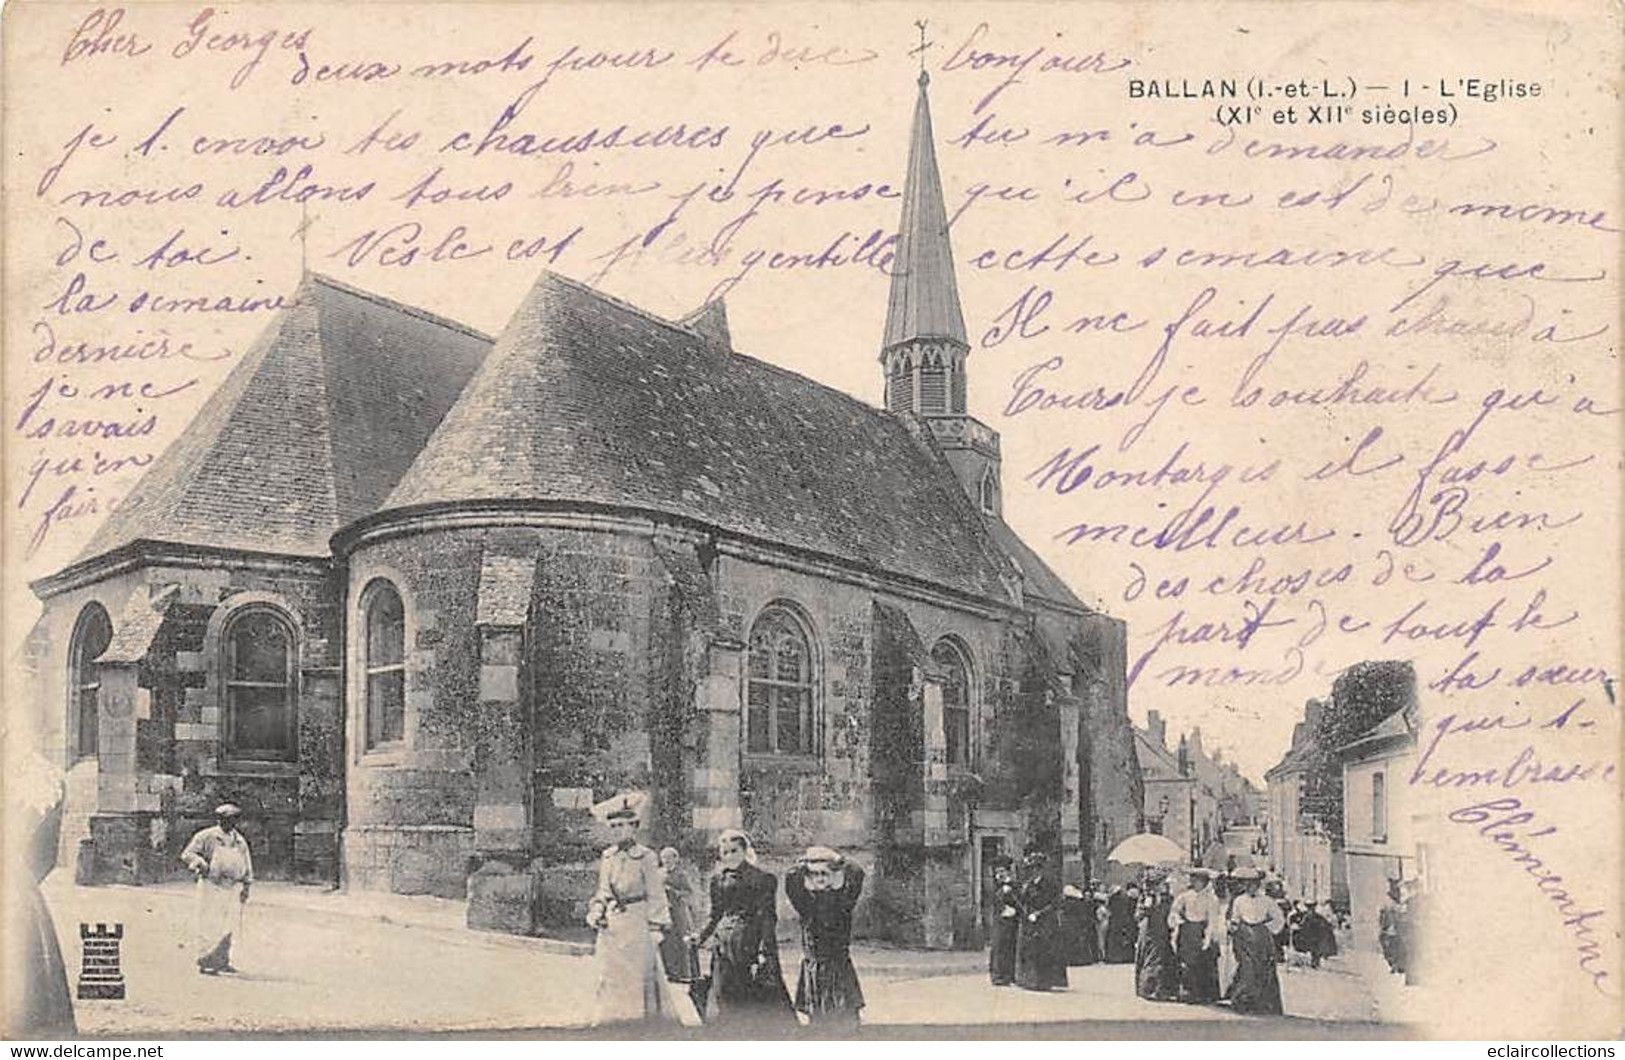 Cher Georges
deux mots pour te dire bonjour
BALLAN (I.-et-L.) — 1 - L'Eglise
(XIe et XIIe siècles)
je t. envoi tes chaussures que tu m'a demander
nous allons tous bien je pense qu'il en est de meme
de toi. est plus gentille cette semaine que
la semaine
dernière
je ne
savais
qu'en
faire
Il ne fait pas chaud à
Tours je souhaite qu'a
Montargis il fasse
meilleur. Bien
des choses de la
part de tout le
monde
ta sœur
qui t-
embrasse
Clémentine
www.delcampe.net
eclaircollections